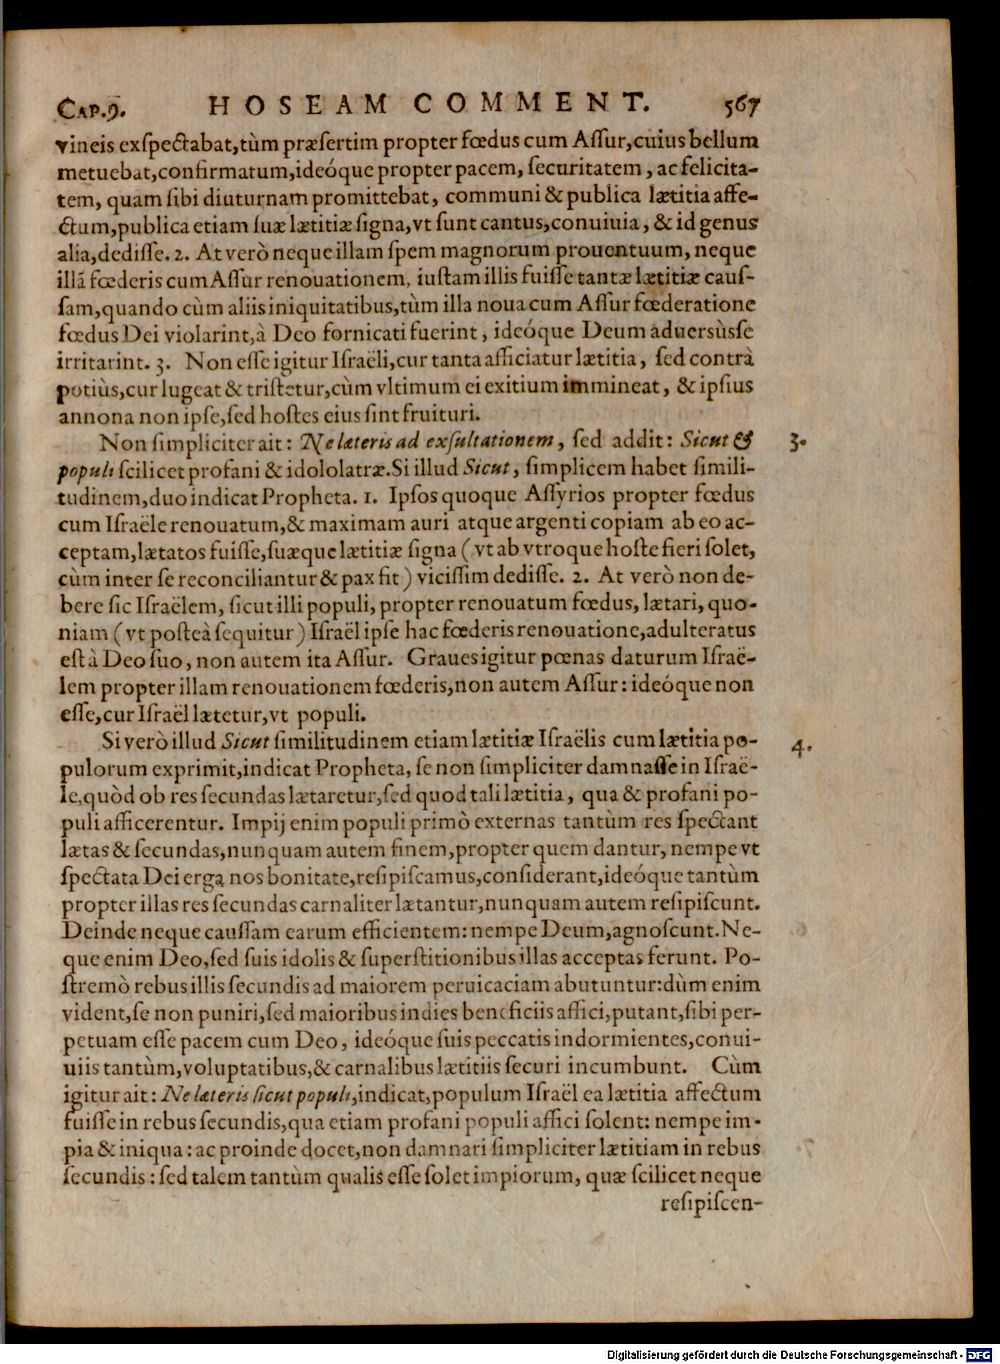 CAP.9. HOSEAM COMMENT. 567
vineis exſpectabat,tùm præſertim propter fœdus cum Aſſur,cuius bellum
metuebat,confirmatum,ideóque propter pacem, ſecuritatem, ac felicita-
tem, quam ſibi diuturnam promittebat, communi & publica lætitia affe-
ctum,publica etiam ſuæ lætitiæ ſigna,vt ſunt cantus,conuiuia, & id genus
alia,dediſſe. 2. At verò neque illam ſpem magnorum prouentuum, neque
illã fœderis cum Aſſur renouationem, iuſtam illis fuiſſe tantæ lætitiæ cauſ-
ſam,quando cùm aliis iniquitatibus,tùm illa noua cum Aſſur fœderatione
fœdus Dei violarint,à Deo fornicati fuerint, ideóque Deum aduersùs ſe
irritarint. 3. Non eſſe igitur Iſraëli,cur tanta afficiatur lætitia, ſed contrà
potiùs,cur lugeat & triſtetur,cùm vltimum ei exitium immineat, & ipſius
annona non ipſe,ſed hoſtes eius ſint fruituri.
Non ſimpliciter ait: Ne læteris ad exſultationem, ſed addit: Sicut & 3.
populi ſcilicet profani & idololatræ. Si illud Sicut, ſimplicem habet ſimili-
tudinem,duo indicat Propheta. 1. Ipſos quoque Aſſyrios propter fœdus
cum Iſraële renouatum,& maximam auri atque argenti copiam ab eo ac-
ceptam,lætatos fuiſſe,ſuæque lætitiæ ſigna (vt ab vtroque hoſte fieri ſolet,
cùm inter ſe reconciliantur & pax fit) viciſſim dediſſe. 2. At verò non de-
bere ſic Iſraëlem, ſicut illi populi, propter renouatum fœdus, lætari, quo-
niam (vt poſteà ſequitur) Iſraël ipſe hac fœderis renouatione,adulteratus
eſt à Deo ſuo, non autem ita Aſſur. Graues igitur pœnas daturum Iſraë-
lem propter illam renouationem fœderis,non autem Aſſur: ideóque non
eſſe,cur Iſraël lætetur,vt populi.
Si verò illud Sicut ſimilitudinem etiam lætitiæ Iſraëlis cum lætitia po- 4.
pulorum exprimit,indicat Propheta, ſe non ſimpliciter damnaſſe in Iſraë-
le,quòd ob res ſecundas lætaretur,ſed quod tali lætitia, qua & profani po-
puli afficerentur. Impij enim populi primò externas tantùm res ſpectant
lætas & ſecundas,nunquam autem finem,propter quem dantur, nempe vt
ſpectata Dei erga nos bonitate,reſipiſcamus,conſiderant,ideóque tantùm
propter illas res ſecundas carnaliter lætantur,nunquam autem reſipiſcunt.
Deinde neque cauſſam earum efficientem: nempe Deum,agnoſcunt. Ne-
que enim Deo,ſed ſuis idolis & ſuperſtitionibus illas acceptas ferunt. Po-
ſtremò rebus illis ſecundis ad maiorem peruicaciam abutuntur:dùm enim
vident,ſe non puniri,ſed maioribus indies beneficiis affici,putant,ſibi per-
petuam eſſe pacem cum Deo, ideóque ſuis peccatis indormientes,conui-
uiis tantùm,voluptatibus,& carnalibus lætitiis ſecuri incumbunt. Cùm
igitur ait: Ne læteris ſicut populi,indicat,populum Iſraël ea lætitia affectum
fuiſſe in rebus ſecundis,qua etiam profani populi affici ſolent: nempe im-
pia & iniqua: ac proinde docet,non damnari ſimpliciter lætitiam in rebus
ſecundis: ſed talem tantùm qualis eſſe ſolet impiorum, quæ ſcilicet neque
reſipiſcen-
Digitalisierung gefördert durch die Deutsche Forschungsgemeinschaft - DFG